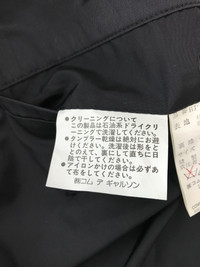 ●クリーニングについて
この製品は石油系ドライクリ
ーニングで洗濯してください。
●タンブラー乾燥は絶対にお避
けください。洗濯後は形をと
とのえて、裏にして直ちに日
陰干してください。
●アイロンかけの場合は必ずあ
て布をしてください。
㈱コム デ ギャルソン